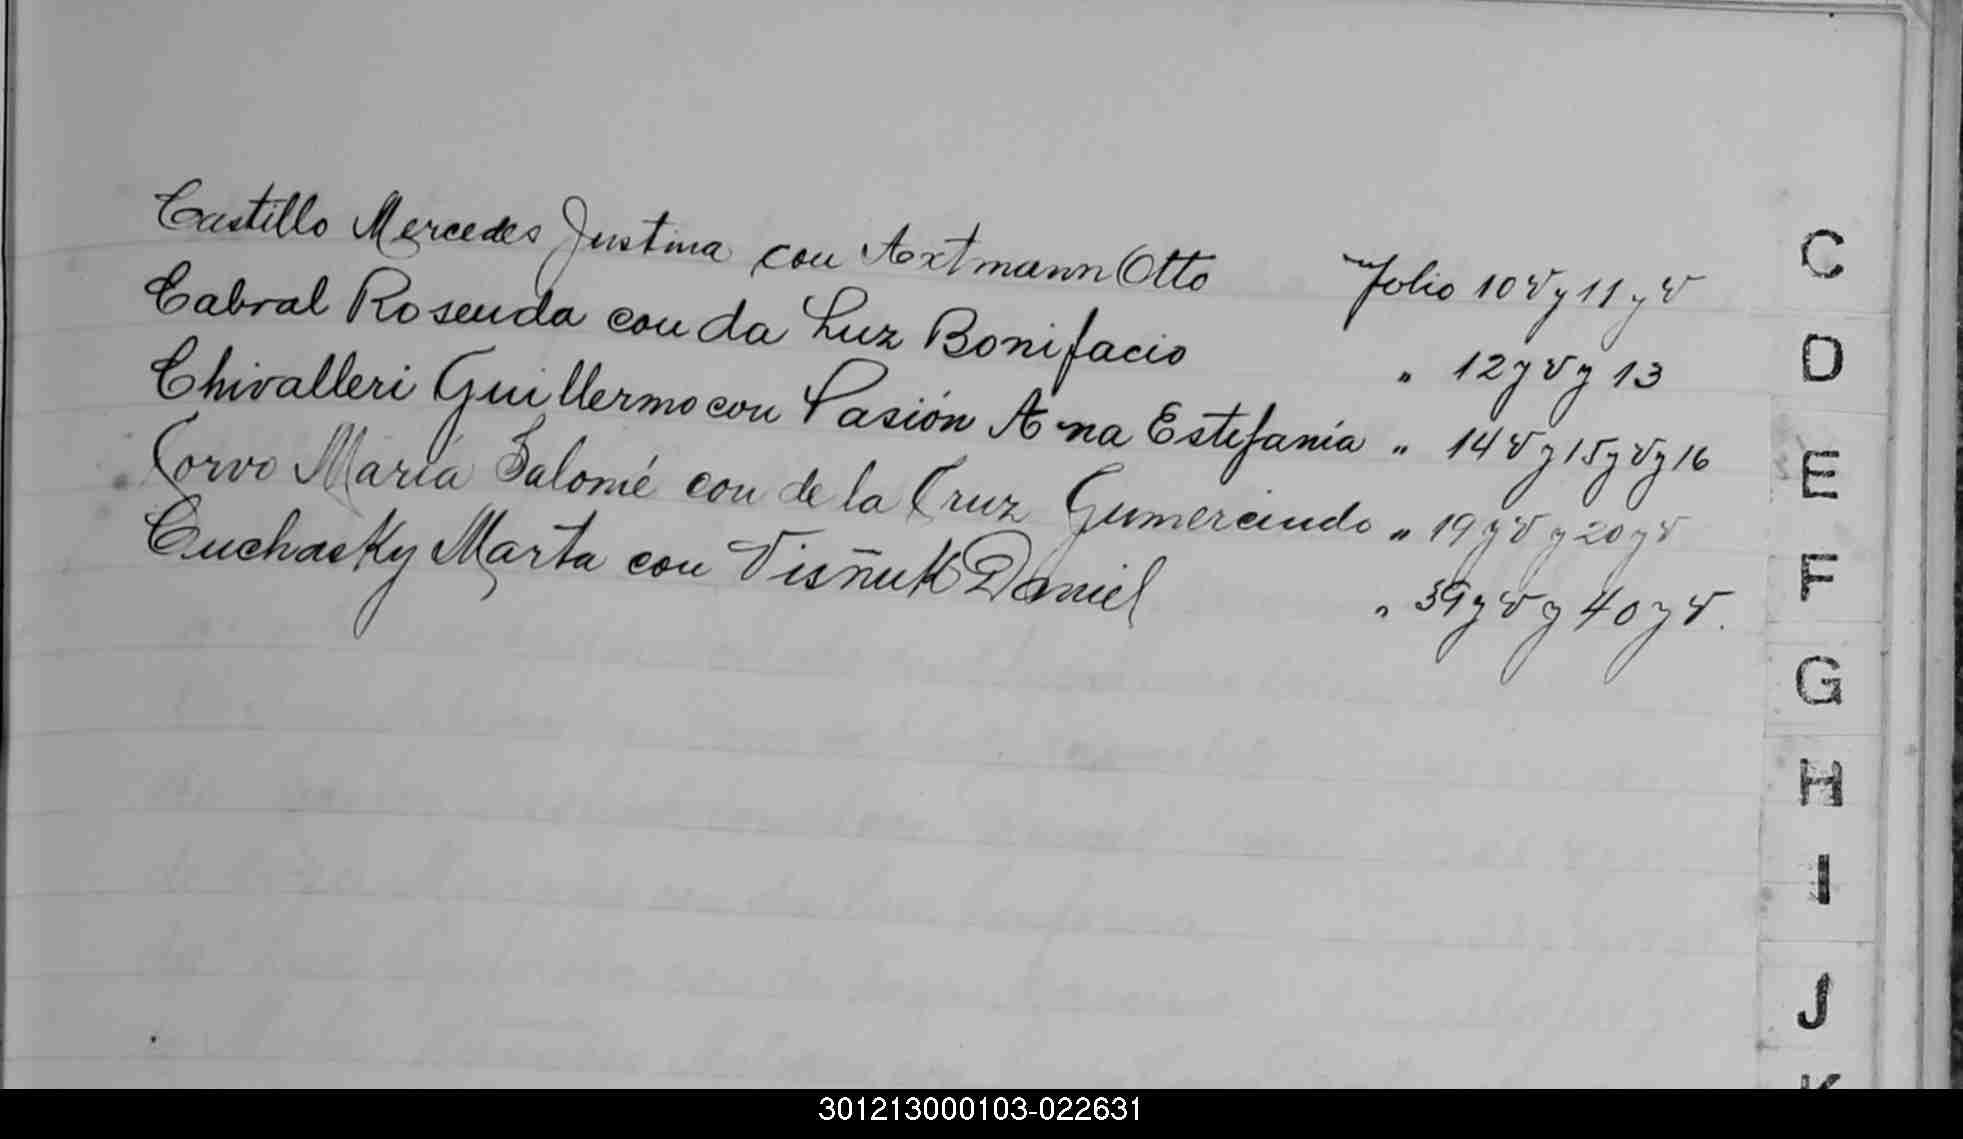 Castillo Mercedes Justina con Axtmann Otto Folio 10 v y 11 y v
Cabral Rosenda con da Luz Bonifacio " 12 y v y 13
Chivalleri Guillermo con Pasión Ana Estefanía " 14 v y 15 y v y 16
Corvo María Salomé con de la Cruz Gumercindo " 19 y v y 20 y v
Cuchasky Marta con Visñuk Daniel " 39 y v y 40 y v.
C
D
E
F
G
H
I
J
K
301213000103-022631